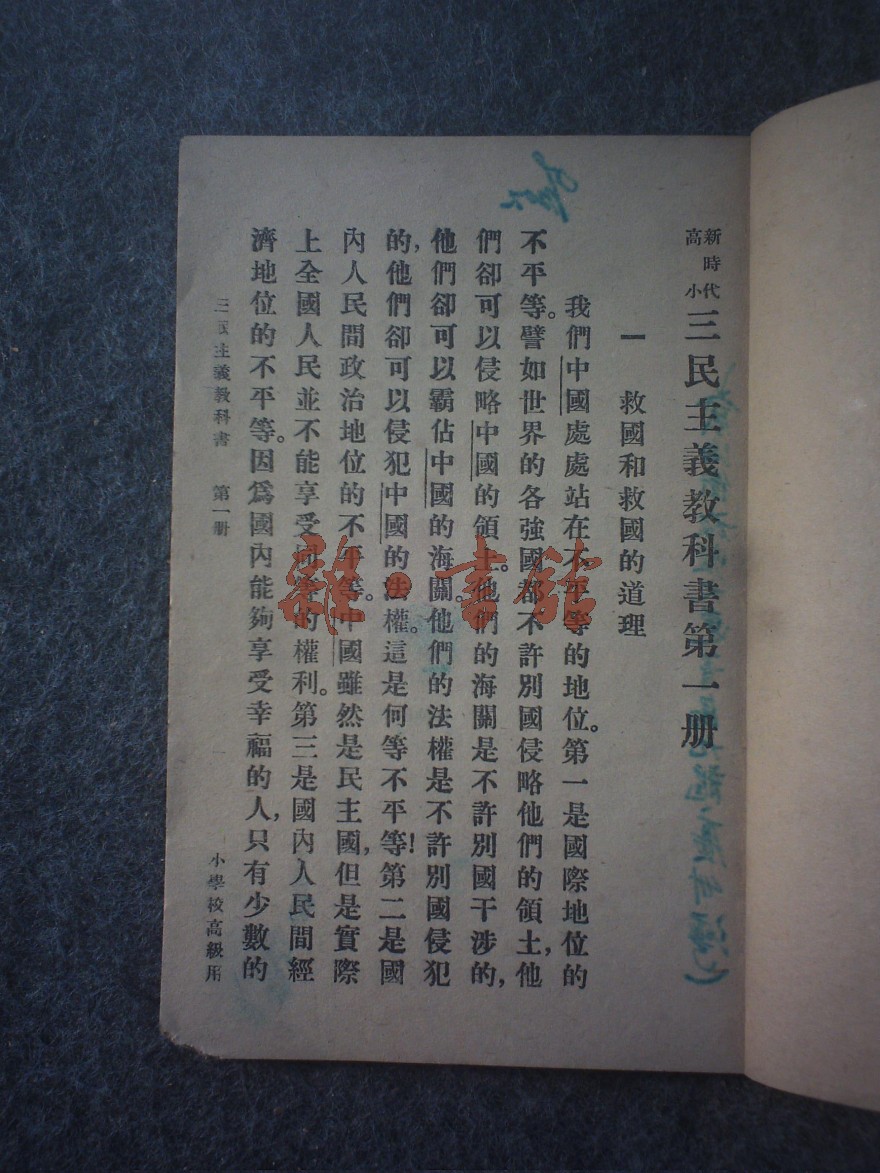 新時代
高小
三民主義教科書第一册
一 救國和救國的道理
我們中國處處站在不平等的地位。第一是國際地位的
不平等。譬如世界的各強國都不許別國侵略他們的領土,他
們卻可以侵略中國的領土。他們的海關是不許別國干涉的,
他們卻可以霸佔中國的海關。他們的法權是不許別國侵犯
的,他們卻可以侵犯中國的法權。這是何等不平等!第二是國
內人民間政治地位的不平等。中國雖然是民主國,但是實際
上全國人民並不能享受同等的權利。第三是國內人民間經
濟地位的不平等。因爲國內能夠享受幸福的人,只有少數的
三民主義教科書 第一册
一
小學校高級用
雜·書館